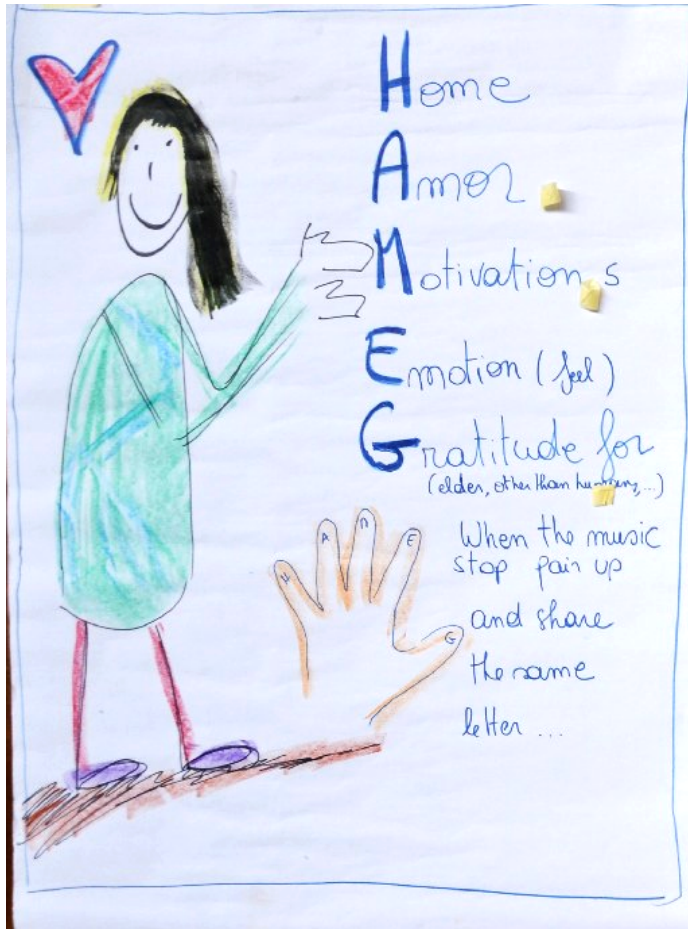 Home
Amor
Motivations
Emotion (feel)
Gratitude for
(elder, other than humans, ...)
When the music
stop pair up
and share
the same
letter ...
H A M E G